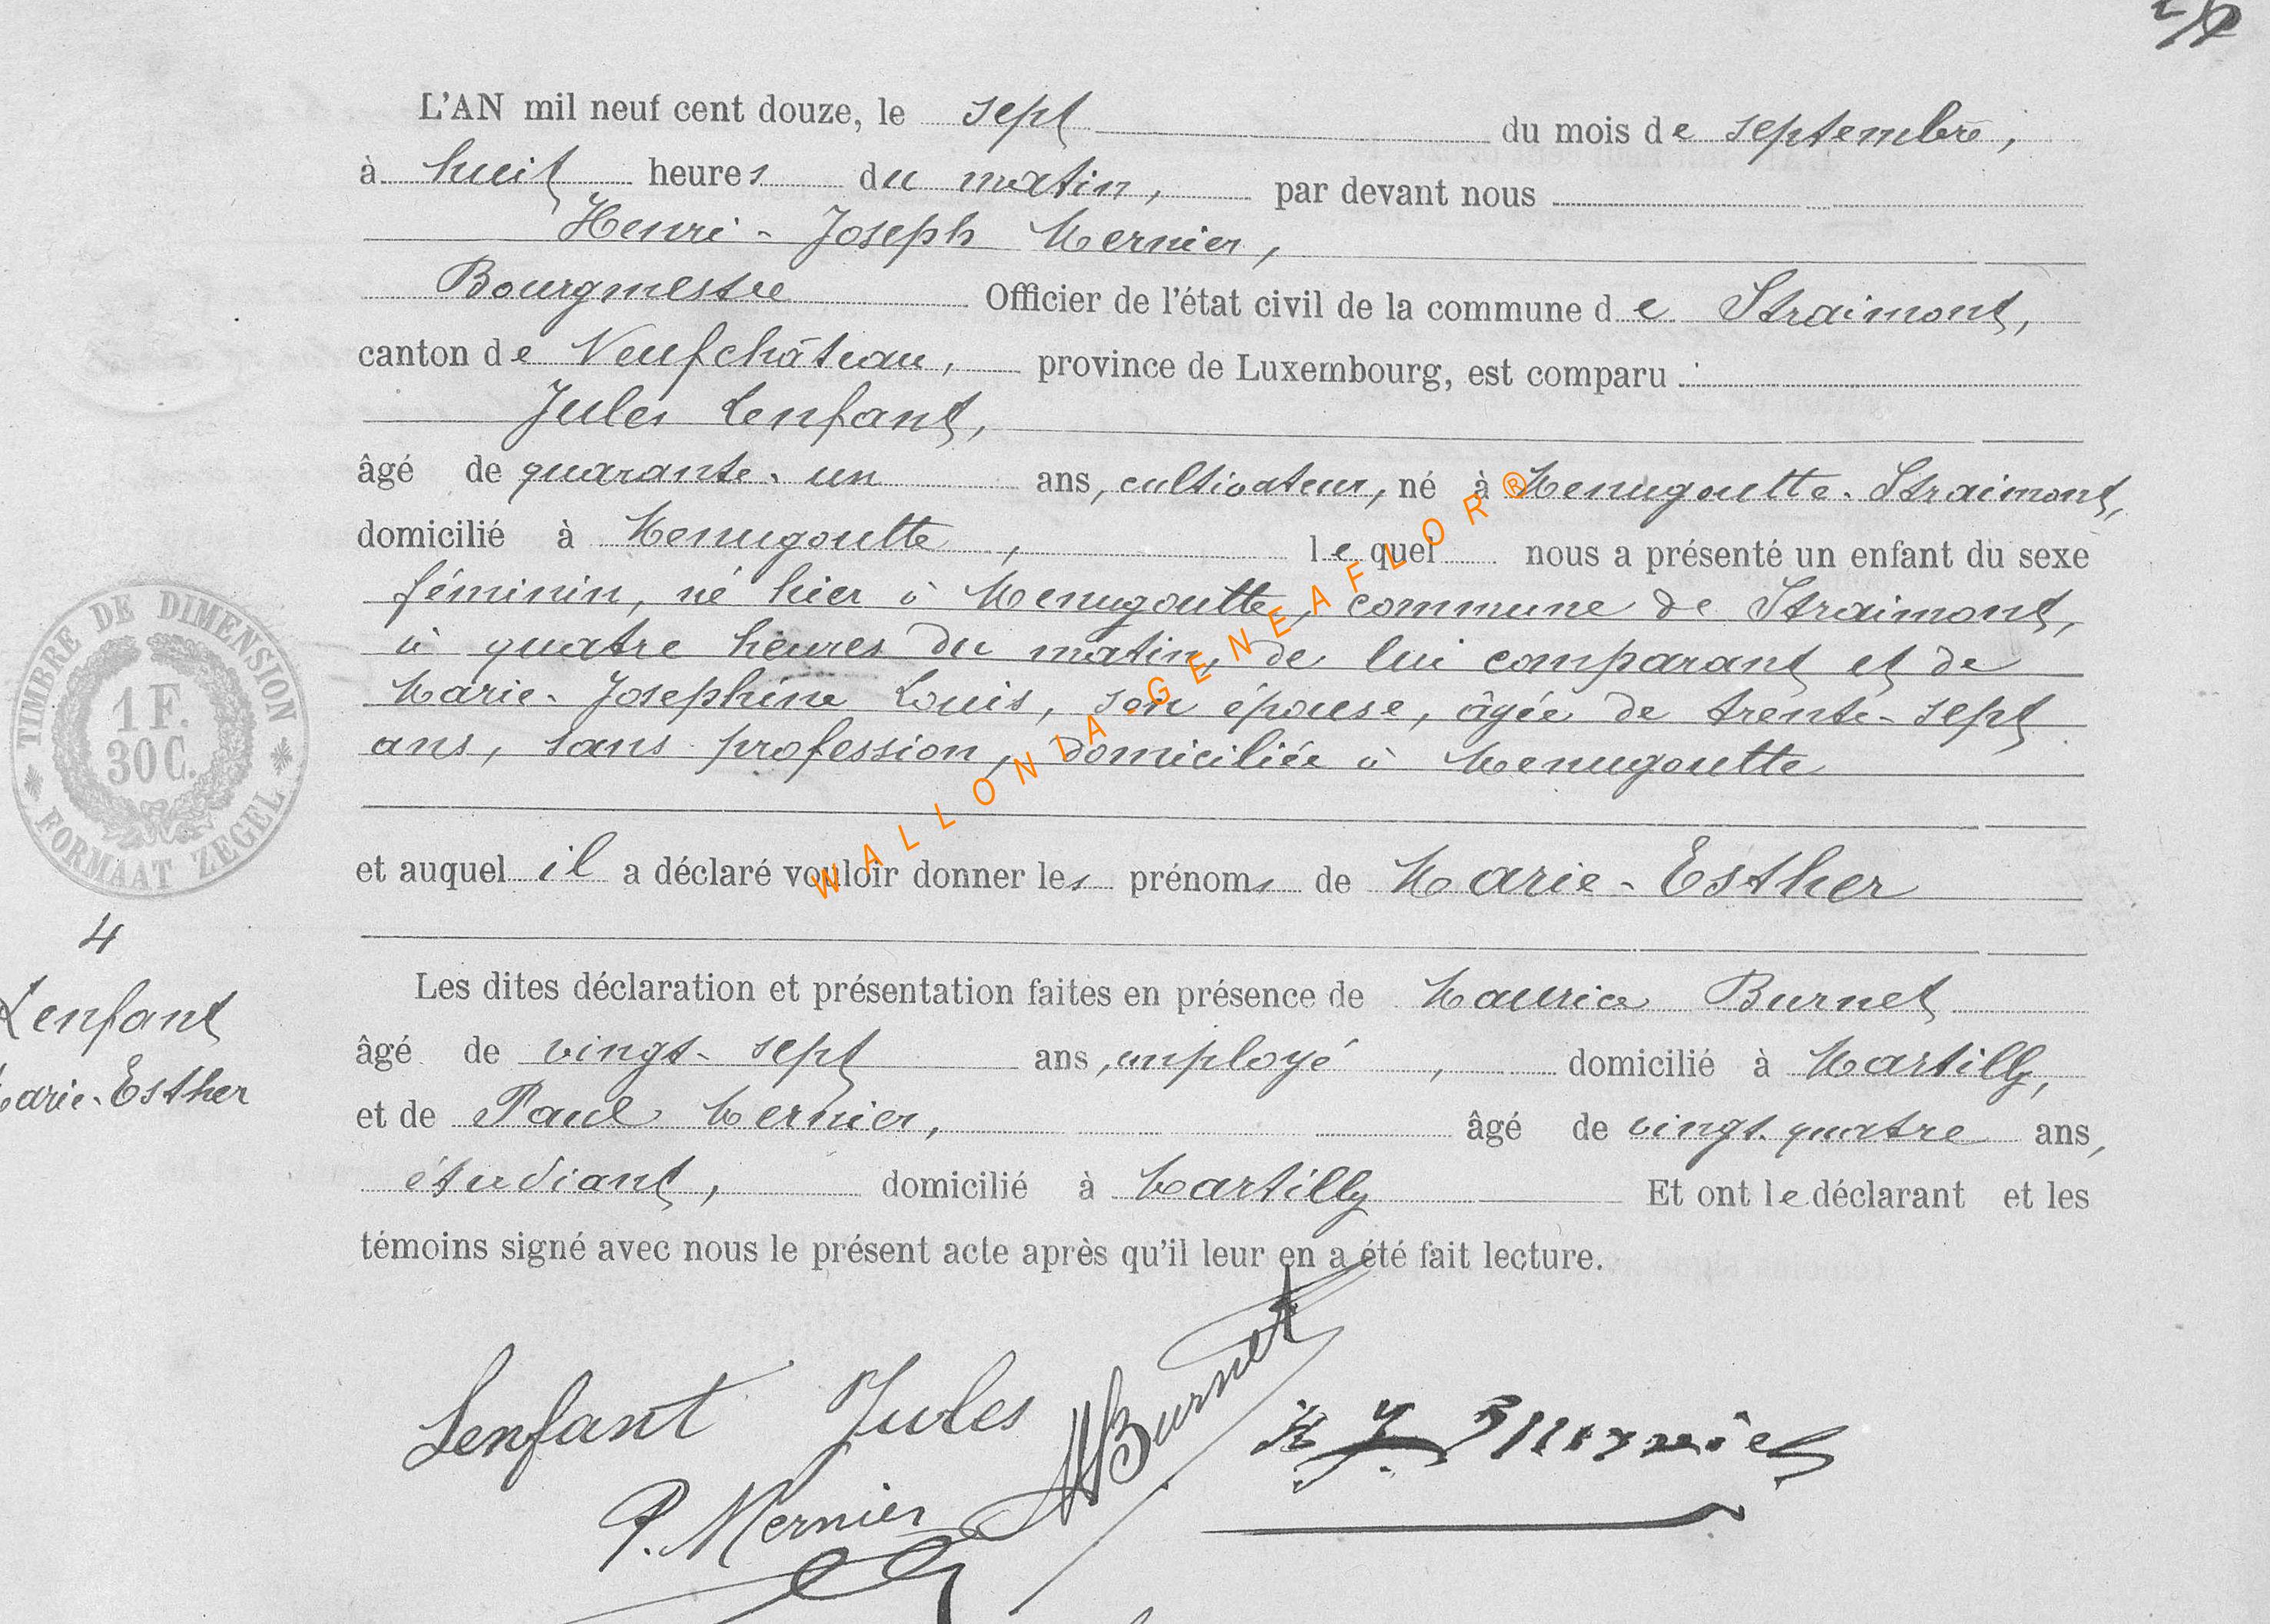 L'AN mil neuf cent douze, le sept du mois de septembre,
à huit heures du matin, par devant nous
Henri-Joseph Mernier,
Bourgmestre Officier de l'état civil de la commune de Straimont,
canton de Neufchâteau, province de Luxembourg, est comparu
Jules Lenfant,
âgé de quarante-un ans, cultivateur, né à Menugoutte-Straimont,
domicilié à Menugoutte, lequel nous a présenté un enfant du sexe
féminin, né hier à Menugoutte, commune de Straimont,
à quatre heures du matin, de lui comparant et de
Marie-Josephine Louis, son épouse, âgée de trente-sept
ans, sans profession, domiciliée à Menugoutte
et auquel il a déclaré vouloir donner les prénoms de Marie-Esther
Les dites déclaration et présentation faites en présence de Maurice Burnet
âgé de vingt-sept ans, employé, domicilié à Martilly,
et de Paul Mernier, âgé de vingt-quatre ans,
étudiant, domicilié à Martilly Et ont le déclarant et les
témoins signé avec nous le présent acte après qu'il leur en a été fait lecture.
TIMBRE DE DIMENSION
1 F.
30 C.
FORMAAT ZEGEL
4
Lenfant
arie-Esther
WALLONIA-GENEAFLOR®
Lenfant Jules
MBurnet
H J Mernier
P. Mernier